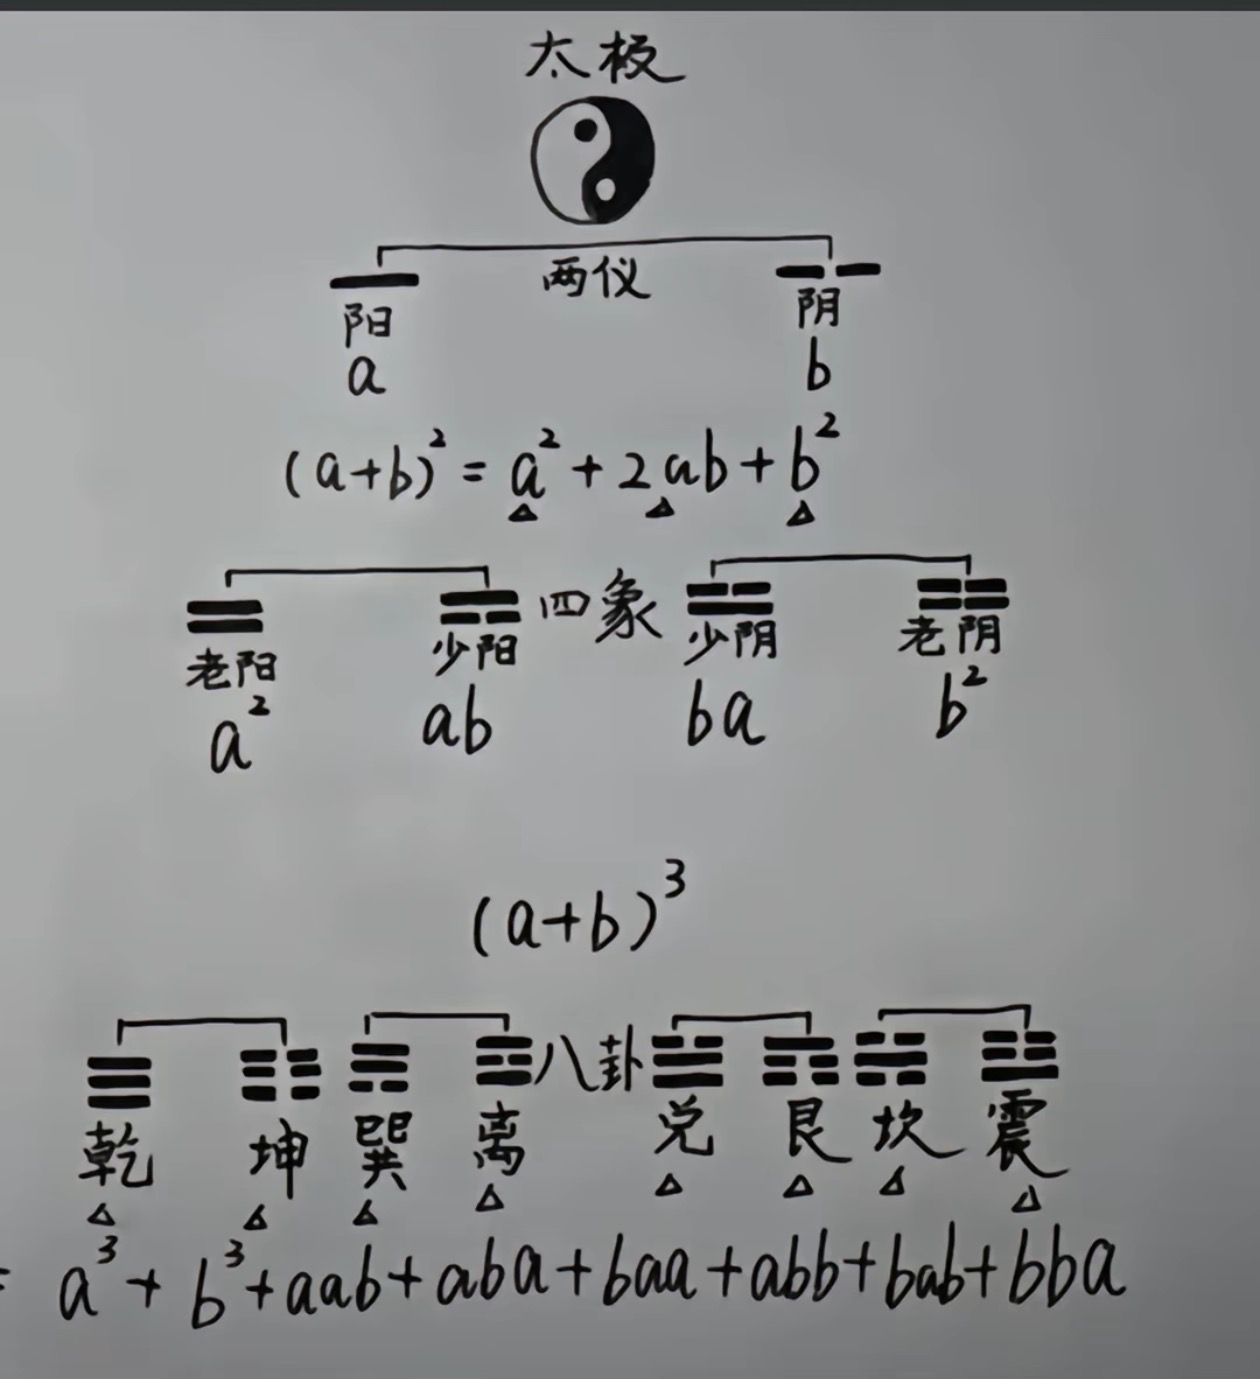 太极
两仪
阳 阴
a b
(a+b)² = a² + 2ab + b²
四象
老阳 少阳 少阴 老阴
a² ab ba b²
(a+b)³
八卦
乾 坤 巽 离 兑 艮 坎 震
= a³ + b³ + aab + aba + baa + abb + bab + bba